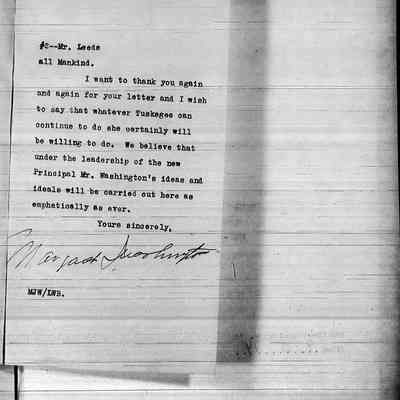 #2--Mr. Leeds
all Mankind.
I want to thank you again
and again for your letter and I wish
to say that whatever Tuskegee can
continue to do she certainly will
be willing to do. We believe that
under the leadership of the new
Principal Mr. Washington's ideas and
ideals will be carried out here as
emphatically as ever.
Yours sincerely,
Margaret J. Washington
MJW/LWB.